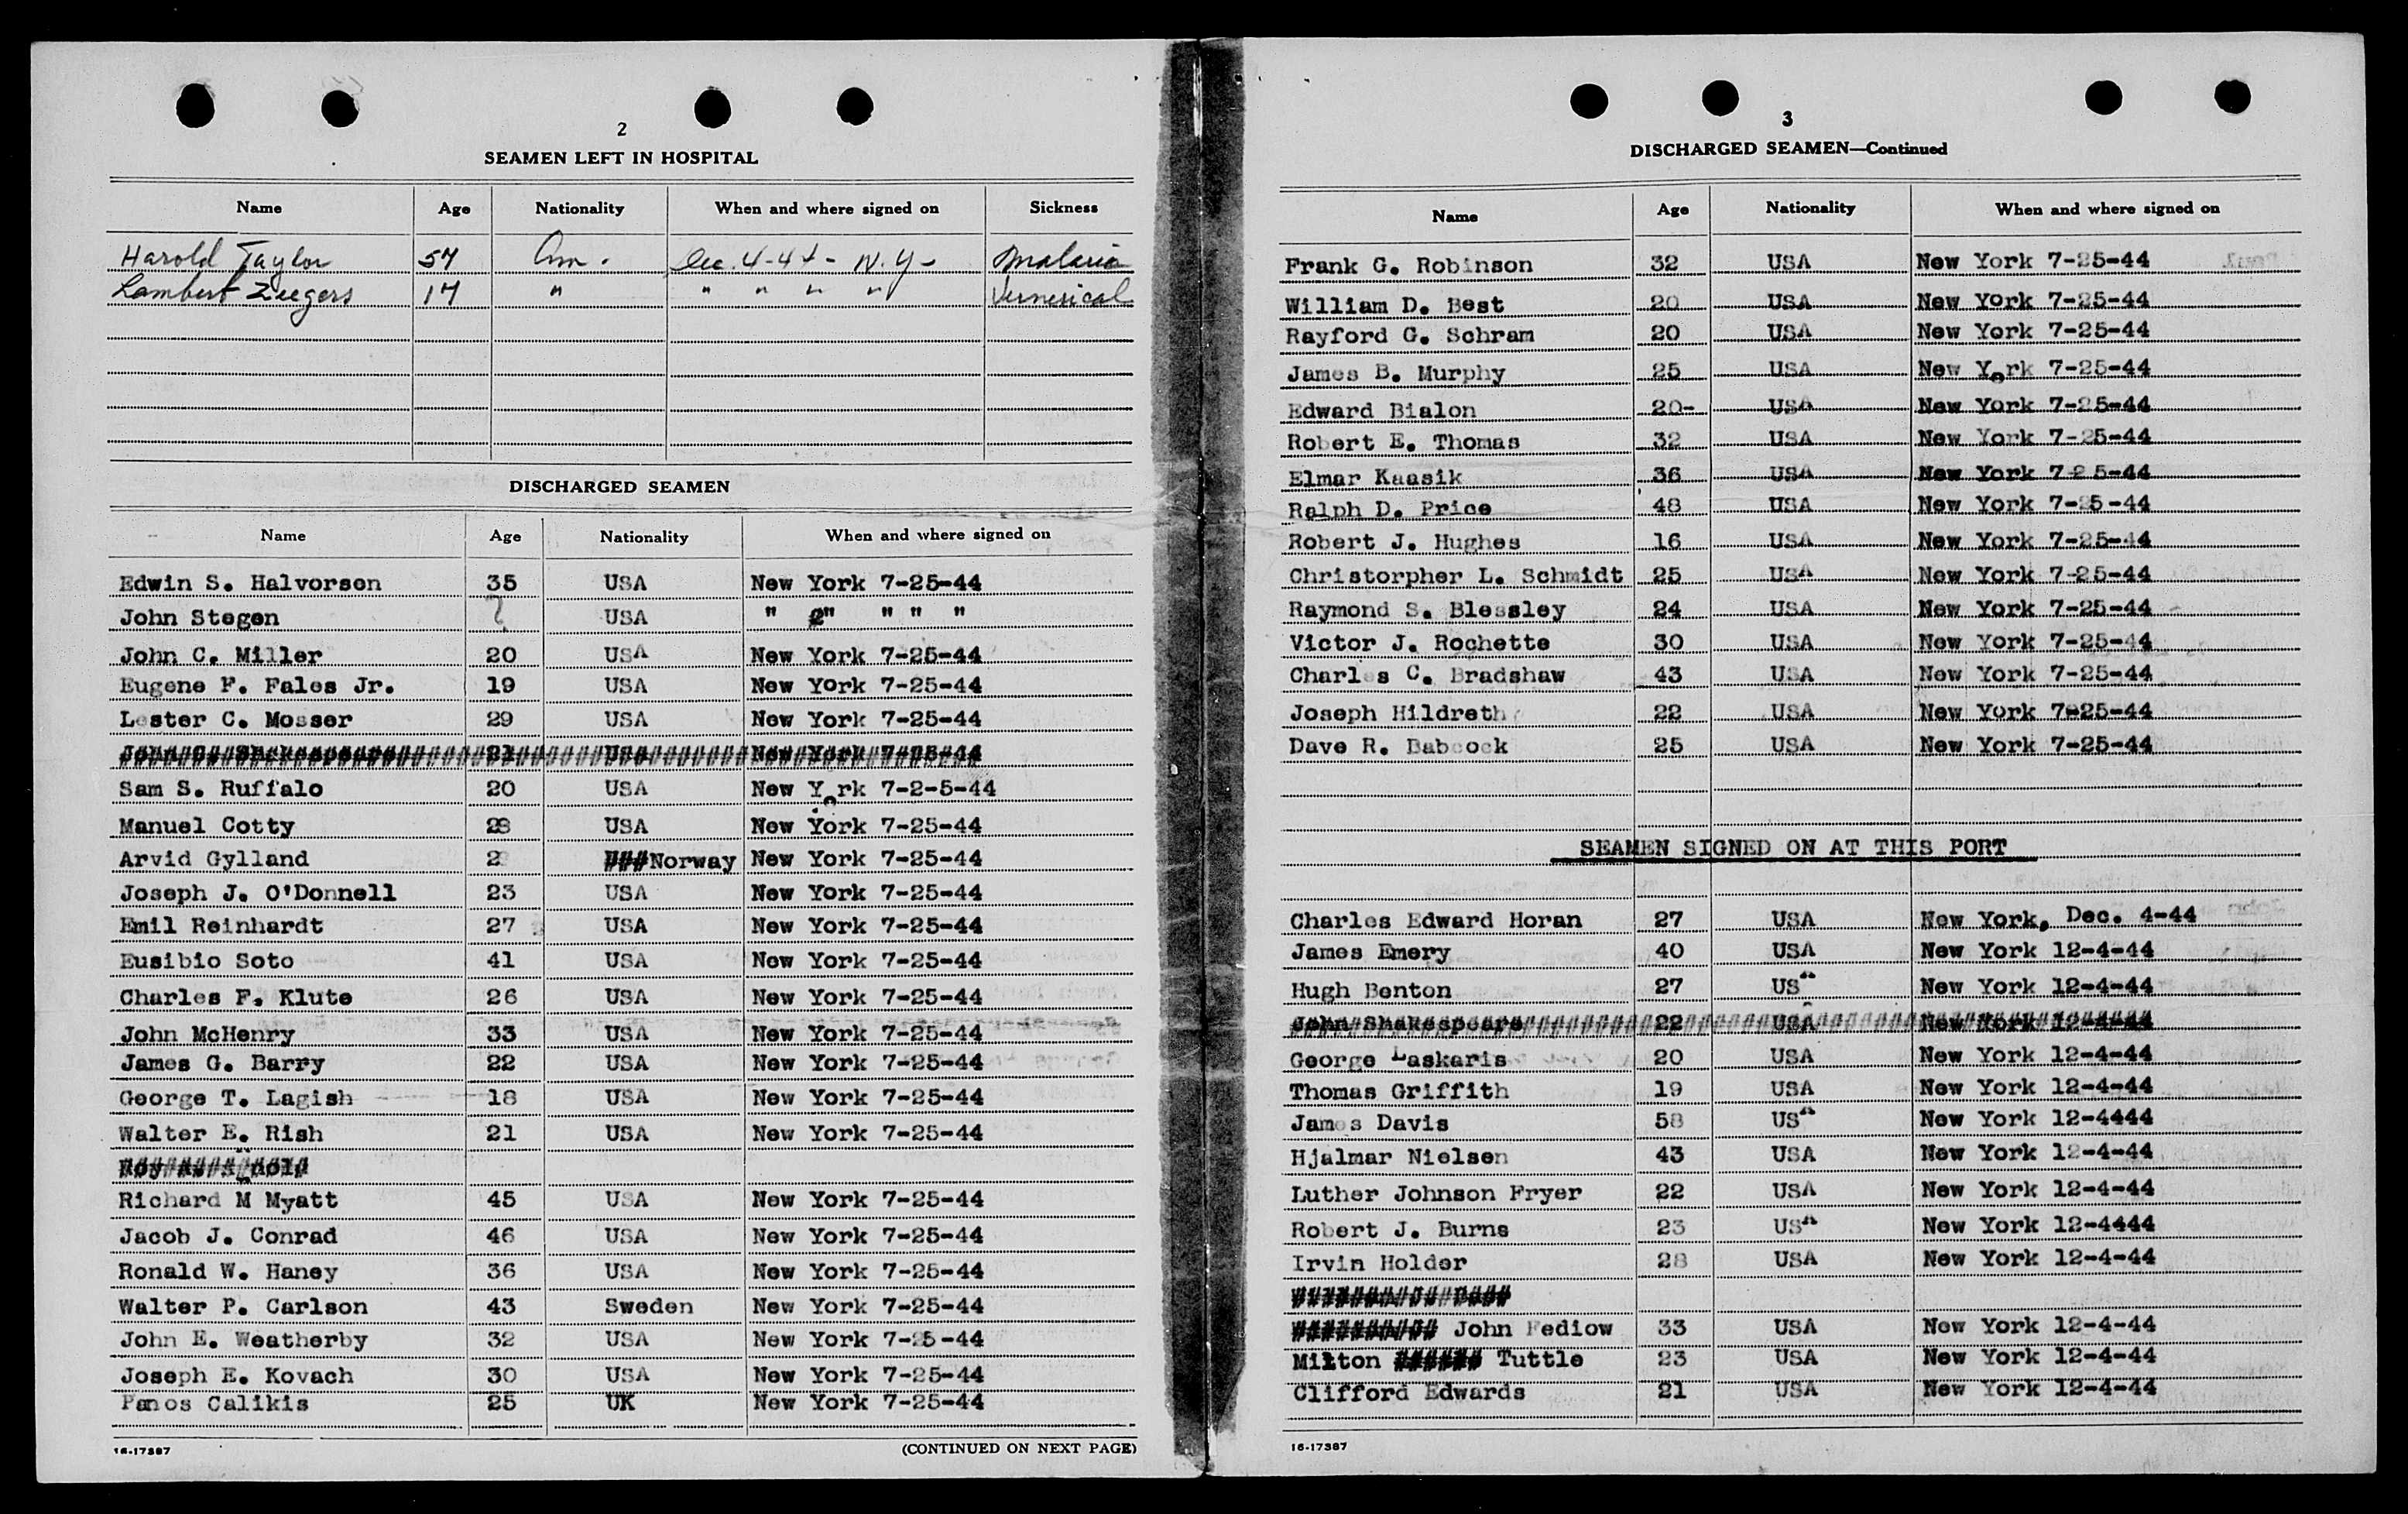 2
SEAMEN LEFT IN HOSPITAL
Name Age Nationality When and where signed on Sickness
Harold Taylor 57 Am. Dec. 4-44 - N.Y - Malaria
Lambert Zeegers 17 " " " " " Vernerical
DISCHARGED SEAMEN
Name Age Nationality When and where signed on
Edwin S. Halvorsen 35 USA New York 7-25-44
John Stegen ? USA " " " " "
John C. Miller 20 USA New York 7-25-44
Eugene F. Fales Jr. 19 USA New York 7-25-44
Lester C. Mosser 29 USA New York 7-25-44
21 USA New York 7-25-44
Sam S. Ruffalo 20 USA New York 7-2-5-44
Manuel Cotty 28 USA New York 7-25-44
Arvid Gylland 2 ###Norway New York 7-25-44
Joseph J. O'Donnell 23 USA New York 7-25-44
Emil Reinhardt 27 USA New York 7-25-44
Eusibio Soto 41 USA New York 7-25-44
Charles F. Klute 26 USA New York 7-25-44
John McHenry 33 USA New York 7-25-44
James G. Barry 22 USA New York 7-25-44
George T. Lagish 18 USA New York 7-25-44
Walter E. Rish 21 USA New York 7-25-44
Richard M Myatt 45 USA New York 7-25-44
Jacob J. Conrad 46 USA New York 7-25-44
Ronald W. Haney 36 USA New York 7-25-44
Walter P. Carlson 43 Sweden New York 7-25-44
John E. Weatherby 32 USA New York 7-25-44
Joseph E. Kovach 30 USA New York 7-25-44
Panos Calikis 25 UK New York 7-25-44
16-17387 (CONTINUED ON NEXT PAGE)
3
DISCHARGED SEAMEN—Continued
Name Age Nationality When and where signed on
Frank G. Robinson 32 USA New York 7-25-44
William D. Best 20 USA New York 7-25-44
Rayford G. Schram 20 USA New York 7-25-44
James B. Murphy 25 USA New York 7-25-44
Edward Bialon 20- USA New York 7-25-44
Robert E. Thomas 32 USA New York 7-25-44
Elmar Kaasik 36 USA New York 7-25-44
Ralph D. Price 48 USA New York 7-25-44
Robert J. Hughes 16 USA New York 7-25-44
Christorpher L. Schmidt 25 USA New York 7-25-44
Raymond S. Blessley 24 USA New York 7-25-44
Victor J. Rochette 30 USA New York 7-25-44
Charles C. Bradshaw 43 USA New York 7-25-44
Joseph Hildreth 22 USA New York 7-25-44
Dave R. Babcock 25 USA New York 7-25-44
SEAMEN SIGNED ON AT THIS PORT
Charles Edward Horan 27 USA New York, Dec. 4-44
James Emery 40 USA New York 12-4-44
Hugh Benton 27 USA New York 12-4-44
John Shakespeare 22 USA New York 12-4-44
George Laskaris 20 USA New York 12-4-44
Thomas Griffith 19 USA New York 12-4-44
James Davis 58 USA New York 12-4444
Hjalmar Nielsen 43 USA New York 12-4-44
Luther Johnson Fryer 22 USA New York 12-4-44
Robert J. Burns 23 USA New York 12-4444
Irvin Holder 28 USA New York 12-4-44
########## John Fediow 33 USA New York 12-4-44
Milton ###### Tuttle 23 USA New York 12-4-44
Clifford Edwards 21 USA New York 12-4-44
16-17387